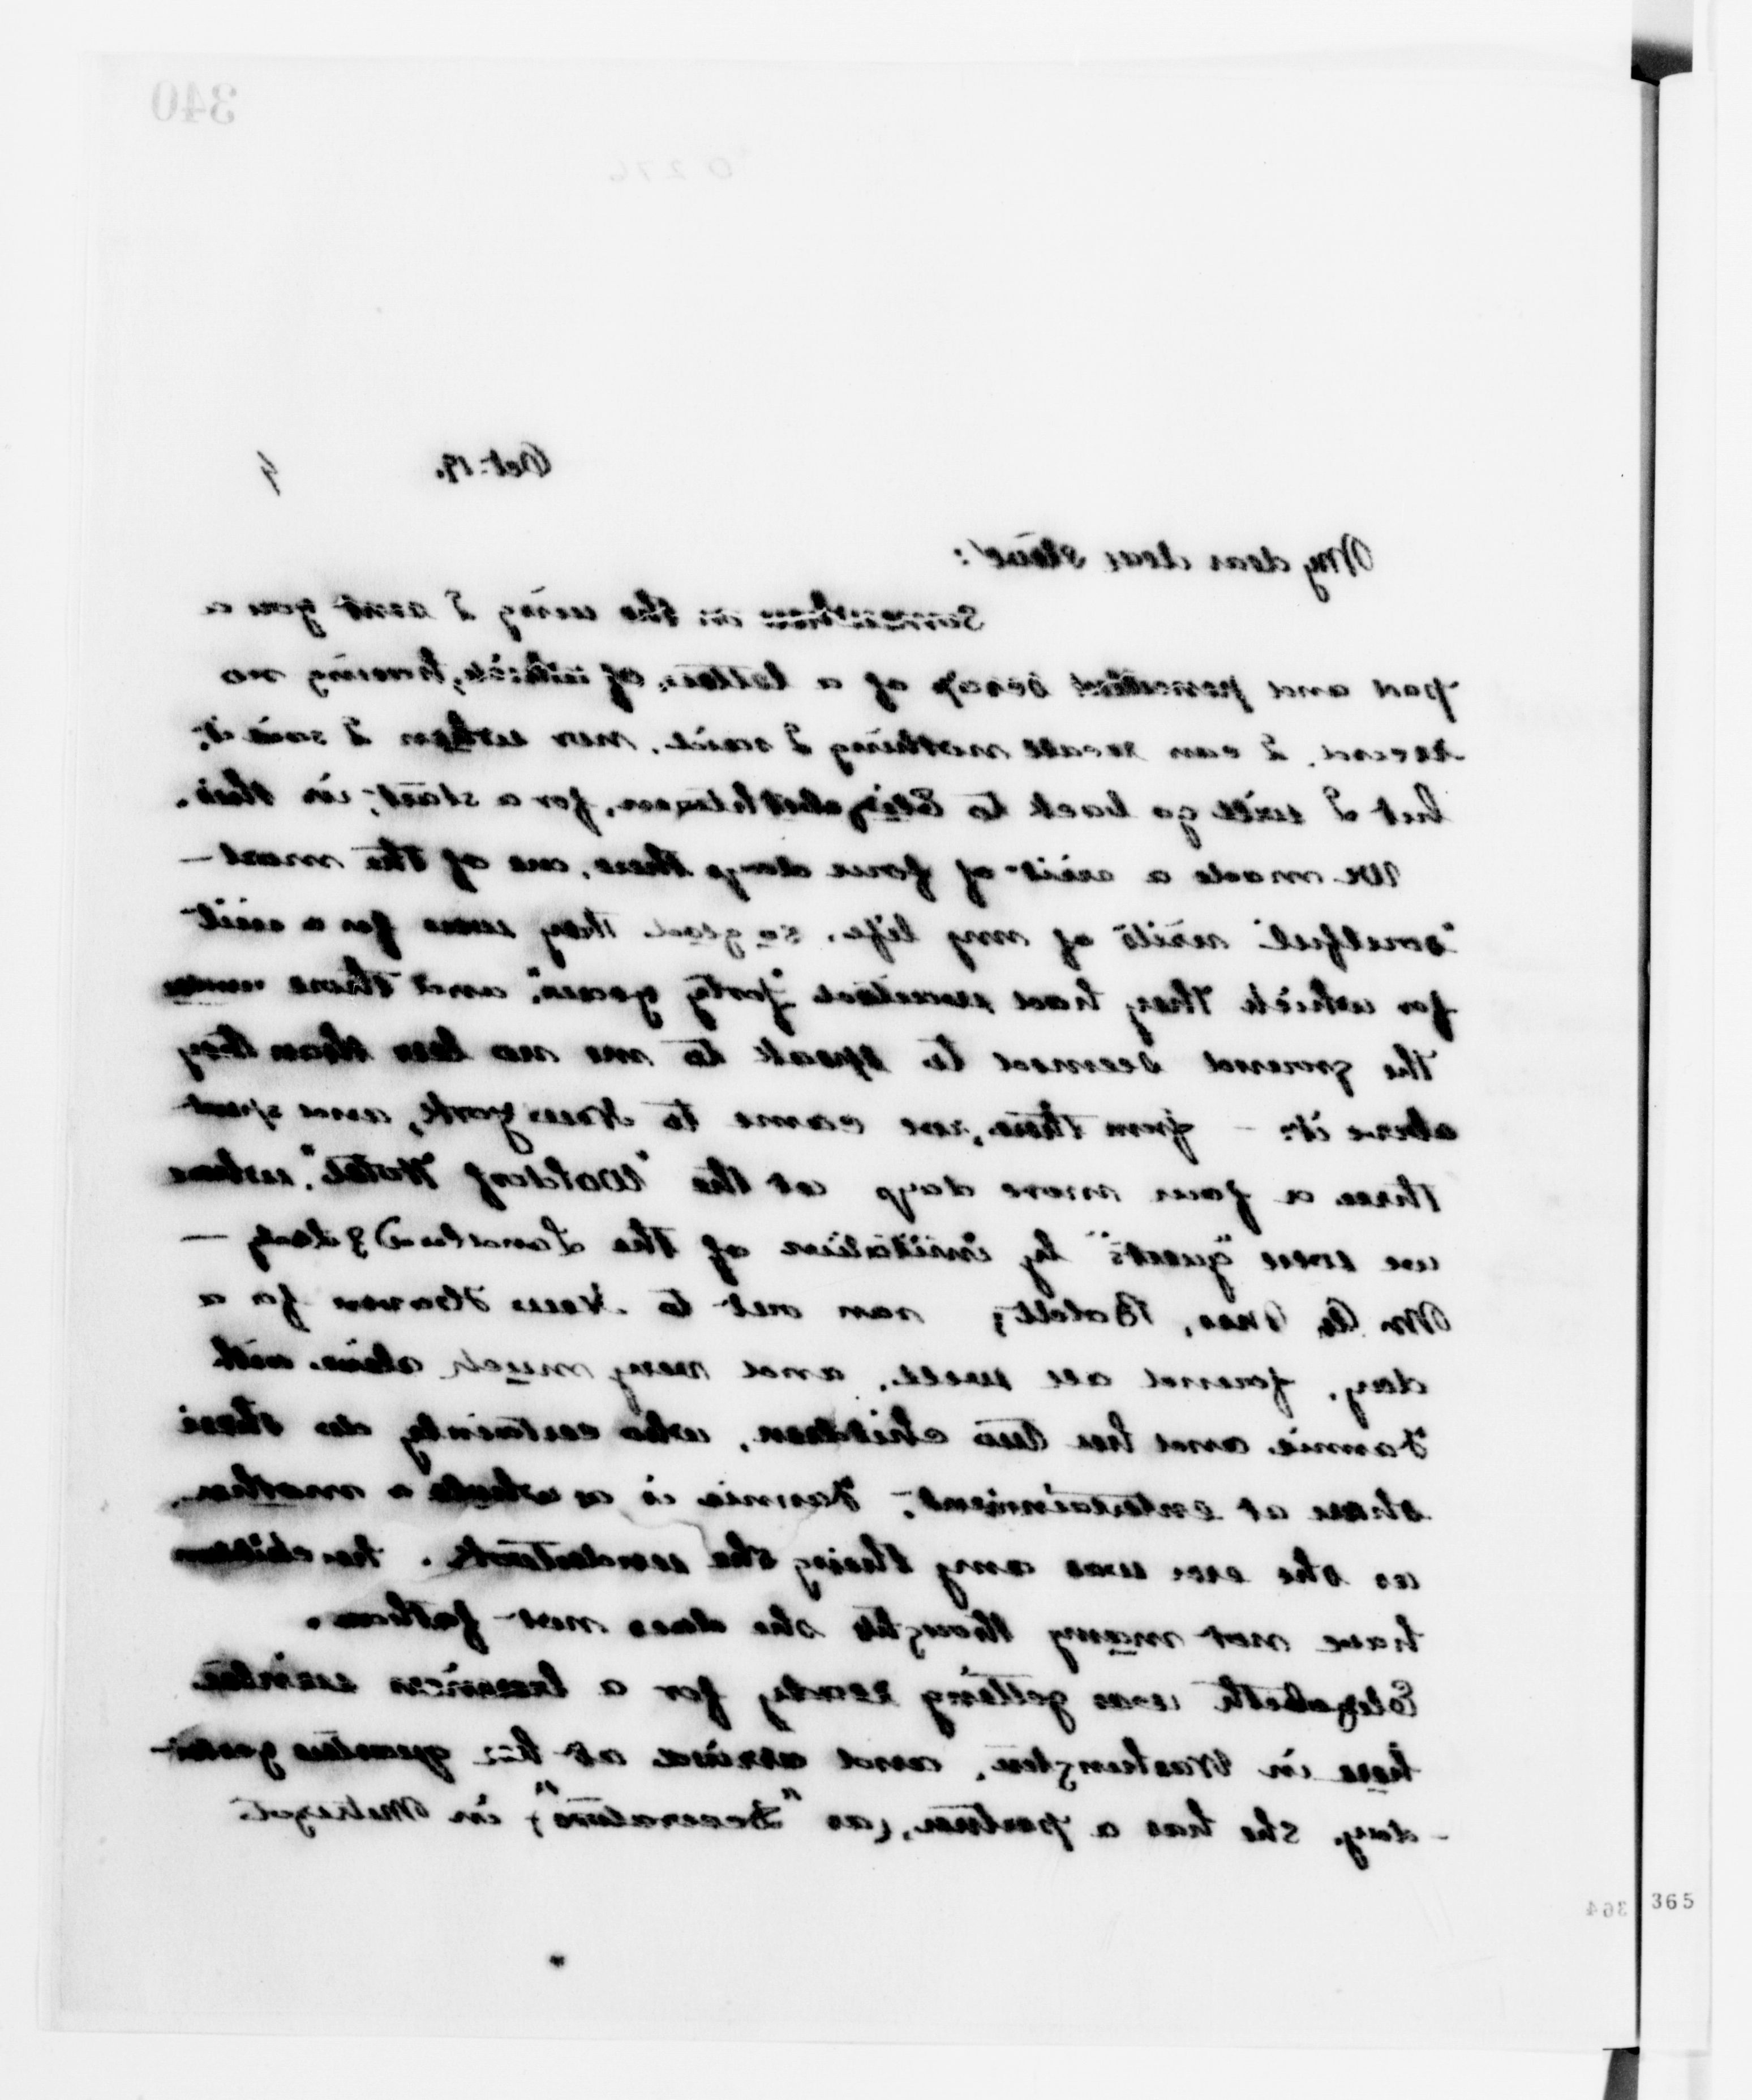 340
Oct. 19.
My dear dear Steve:
Somewhere on the wing I sent you a
pad and pencilled scrap of a letter, of which, having no
record, I can recall nothing I said, nor when I said it;
but I will go back to Elizabethtown, for a start, in this.
We made a visit of four days there, one of the most
"soulful" visits of my life, so glad they were for a visit
for which they had waited "forty years", and those under
the ground seemed to speak to me no less than they
above it: - from there, we came to New York, and spent
there a four more days at the "Waldorf Hotel", where
we were "guests" by invitation of the Landlord & Lady —
Mr. & Mrs. Boldt; ran out to New Haven for a
day, found all well, and very much alive with
Fannie and her two children, who certainly do their
share at entertainment; Fannie is as whole a mother
as she ever was any thing she undertook. her children
have not many thoughts she does not fathom.
Elizabeth was getting ready for a business winter
here in Washington, and arrived at her quarters yester-
-day. She has a partner, (as "Decorators"), in
364
365